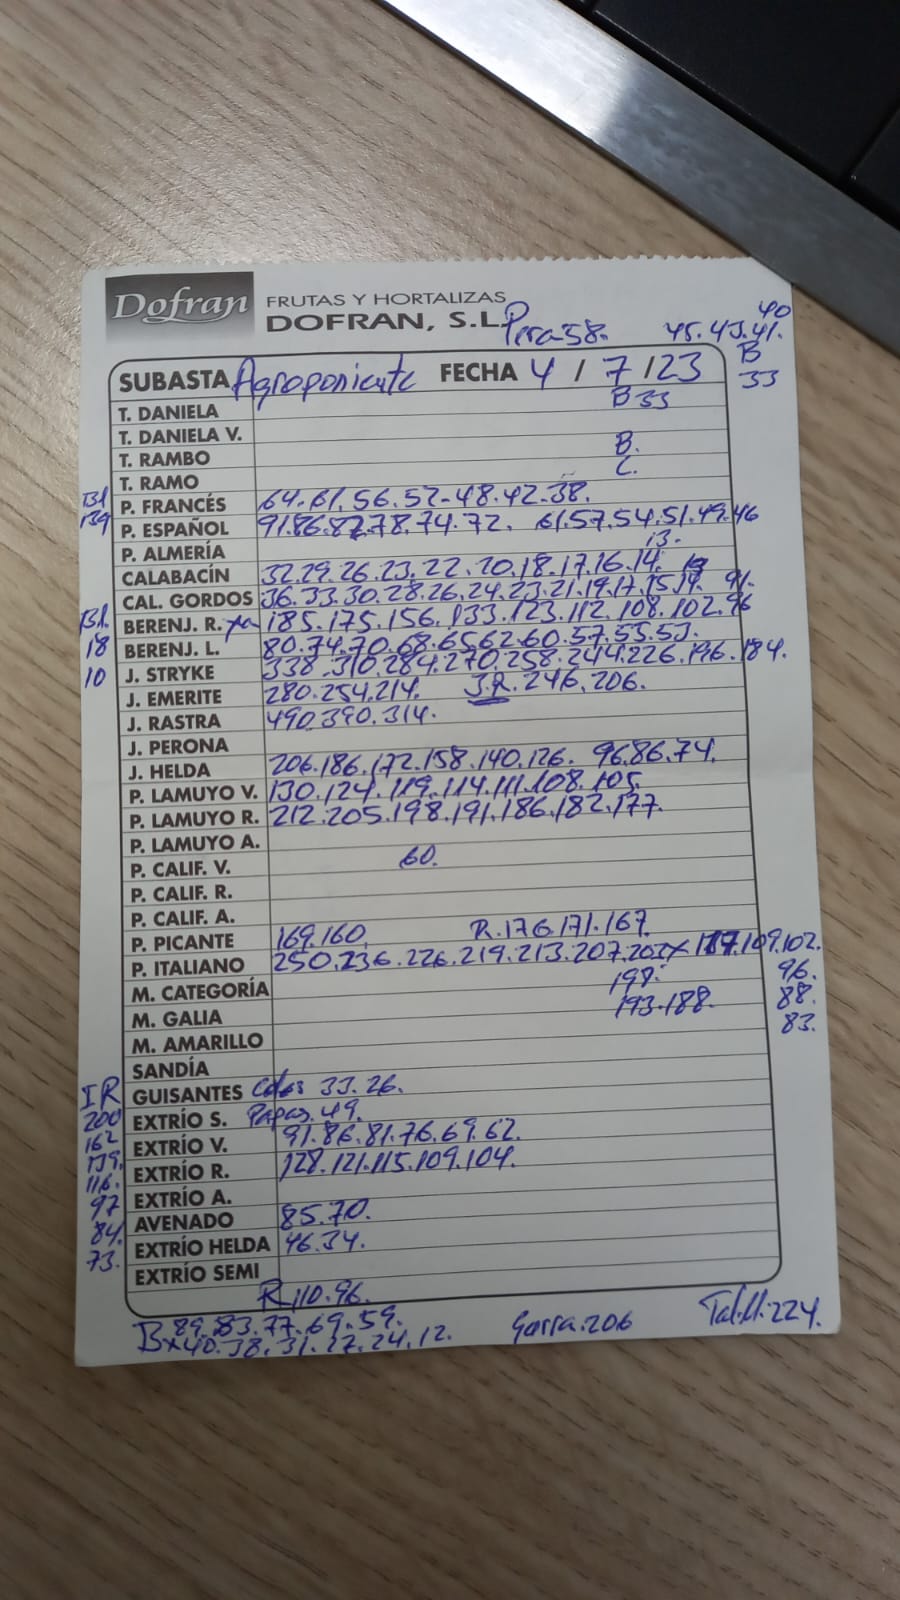 Dofran FRUTAS Y HORTALIZAS
DOFRAN, S.L. Pera 58. 45.43.41. 40
B
33
SUBASTA Agroponiente FECHA 4 / 7 / 23
T. DANIELA B 33
T. DANIELA V.
T. RAMBO B.
T. RAMO C.
P. FRANCÉS 64.61.56.52-48.42.38.
139 P. ESPAÑOL 91.86.82.78.74.72. 61.57.54.51.49.46
P. ALMERÍA 13.
CALABACÍN 32.29.26.23.22.20.18.17.16.14.
CAL. GORDOS 36.33.30.28.26.24.23.21.19.17.15.14. 91.
BERENJ. R. 185.175.156.133.123.112.108.102.96
18 BERENJ. L. 80.74.70.68.65.62.60.57.55.53.
10 J. STRYKE 338.310.284.270.258.244.226.196.184.
J. EMERITE 280.254.214. J.R. 246.206.
J. RASTRA 490.390.314.
J. PERONA
J. HELDA 206.186.172.158.140.126. 96.86.74.
P. LAMUYO V. 130.124.119.114.111.108.105.
P. LAMUYO R. 212.205.198.191.186.182.177.
P. LAMUYO A.
P. CALIF. V. 60.
P. CALIF. R.
P. CALIF. A.
P. PICANTE 169.160. R.176.171.167.
P. ITALIANO 250.236.226.219.213.207.203 x 117.109.102.
M. CATEGORÍA 198. 96.
M. GALIA 193.188. 88.
M. AMARILLO 83.
SANDÍA
IR GUISANTES 33.26.
200 EXTRÍO S. Papas. 49.
162 EXTRÍO V. 91.86.81.76.69.62.
139. EXTRÍO R. 128.121.115.109.104.
116. EXTRÍO A.
97 AVENADO 85.70.
84. EXTRÍO HELDA 46.34.
73. EXTRÍO SEMI
R 110.96.
B 89.83.77.69.59.
x 40.38.31.27.24.12. Garra.206 224.